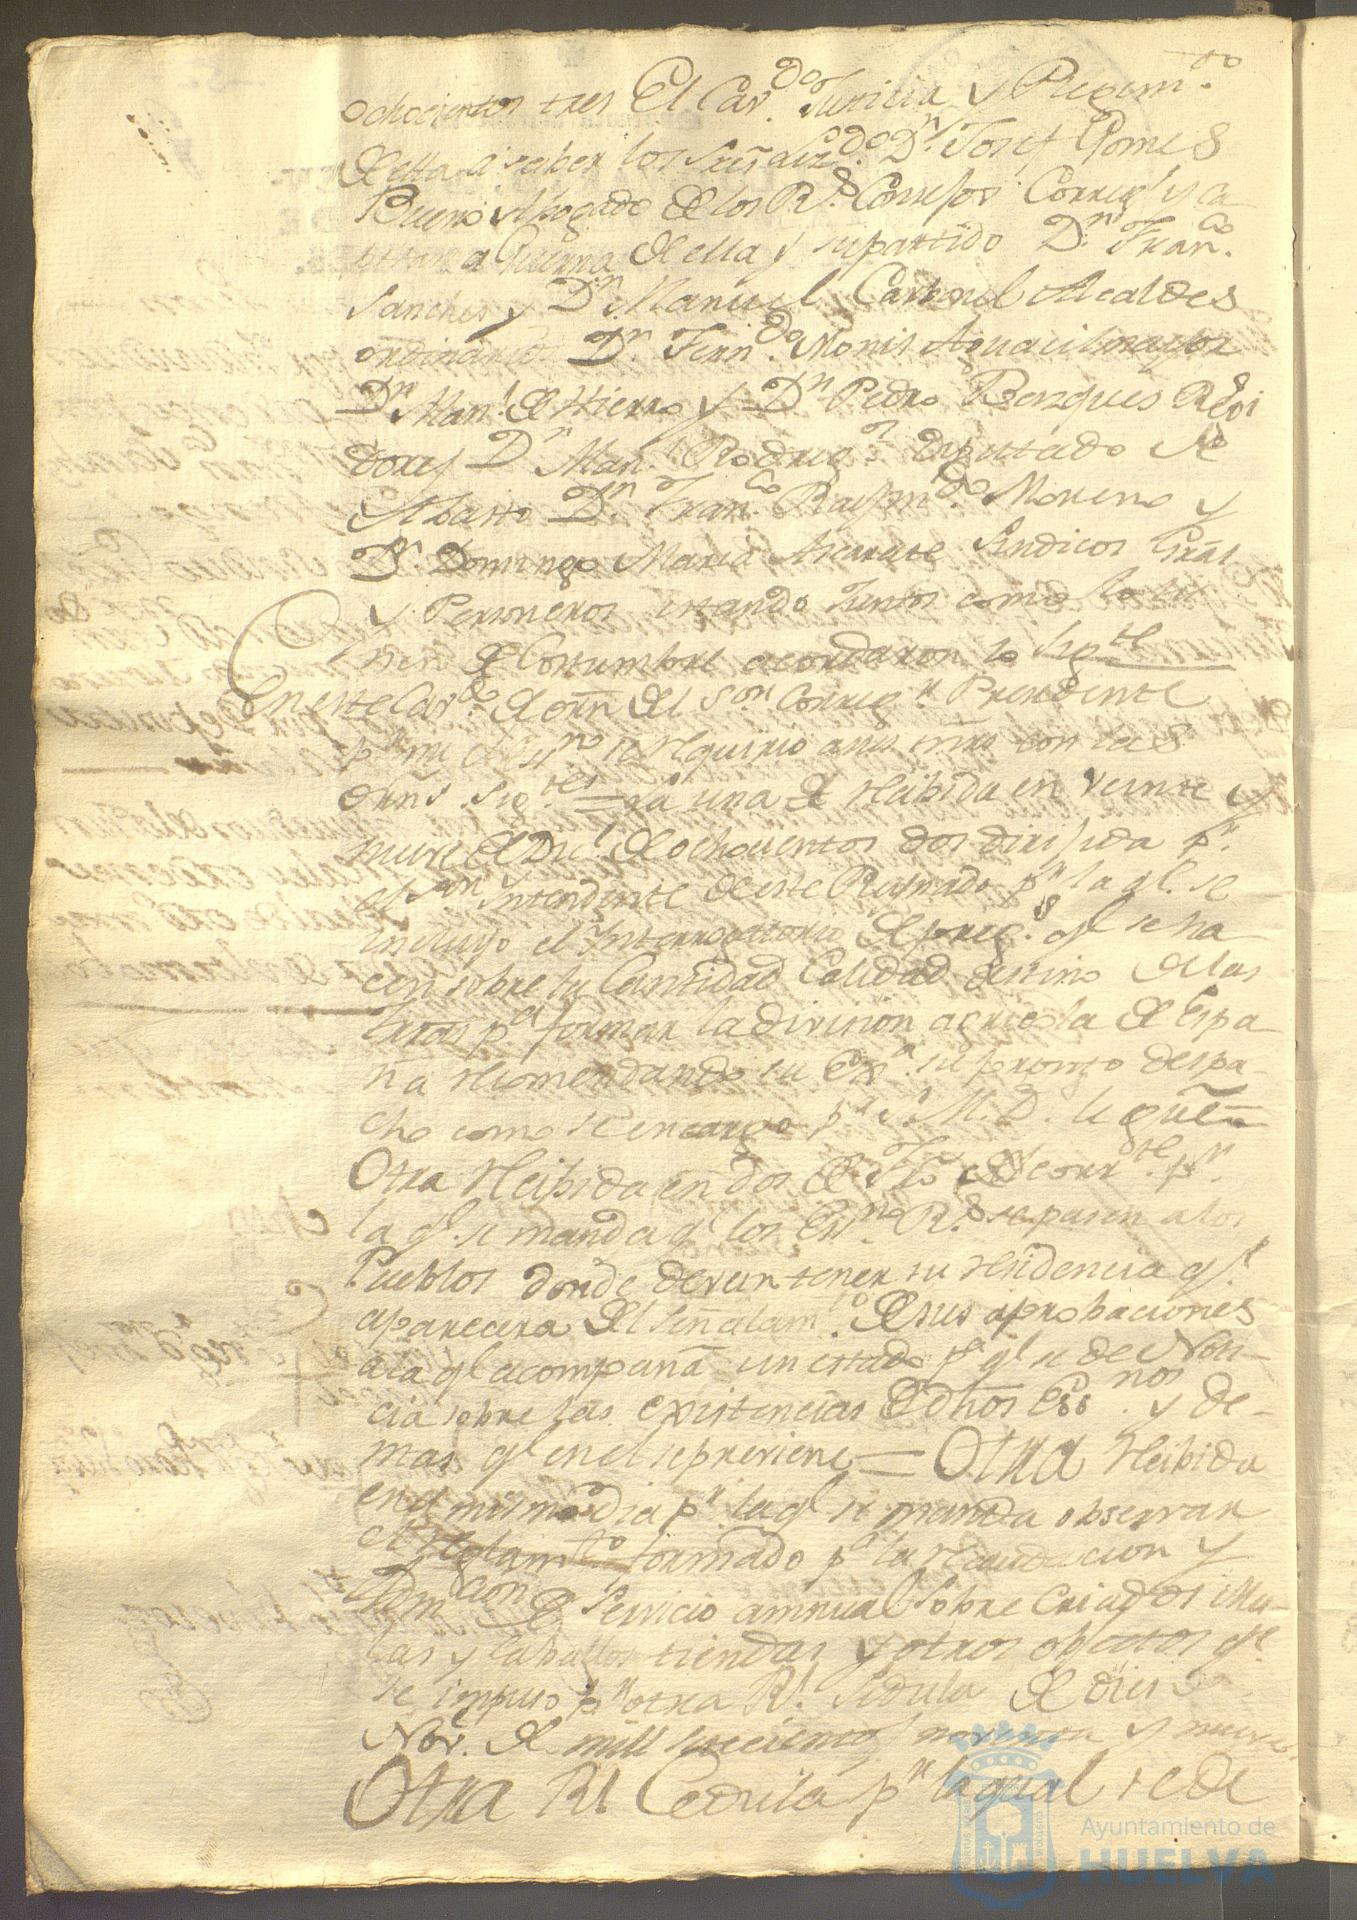 ochocientos tres El Cav.do Justicia y Regim.to
de ella a saber los Señ Liz.do Dn. Josef Gomes
Bueno Abogado de los R.s Consejos Correg.r y ca
a Guerra de ella y su partido Dn. Fran.co
Sanches y Dn. Manuel Carbonel Alcaldes
ordinarios Dn. Fern.do Monis Aguacil mayor
Dn Man.l de Hierro y Dn Pedro Bazques Regi
dores Dn Man.l Rodrig.z Diputado de
Abasto Dn. Fran.co Raym.do Moreno y
Dn. Domingo Maria Ascarate Sindicos Gräl
y Personeros estando Juntos como lo tie
nen de Costumbre acordaron lo Sig.te
En este Cav.do de orn del S.or Correg.r Presidente
p.r mi el Es.no se requirio a sus mrs con las
orns. sig.tes = La una de recibida en veinte y
nueve de Dic.e de ochocientos dos dirijida p.r
el S.or Intendente de este Reynado p.r la ql. se
incluyo el Interrogatorio de preg.s ql se ha
cen sobre la Cantidad Calidad destino de las
tierras p.a formar la division agricola de Espa-
ña recomendando su Ex.a su pronto despa-
cho como se encarga p.r S. M. D. le gue =
Otra recibida en dos de del corr.te p.r
la ql. se manda ql los Es.nos R.s se pasen a los
Pueblos donde devan tener su residencia ql.
aparecera del señalam.to de sus aprobaciones
a la ql acompaña un estado p.a ql se de Noti-
cia sobre las existencias de dhos Es.nos y de-
mas ql en el se previene = Otra recibida
en el mismo dia p.r la ql se manda observar
el Reglam.to formado p.a la recaudacion y
Adm.cion de Servicio annual sobre criados Mu-
las y Caballos tiendas y otros objetos ql.
se impuso p.r otra Rl. Sedula de dies de
Nov.e de mill setecientos noventa y nueve
Otra Rl Cedula p.r la qual se de
Ayuntamiento de
HUELVA